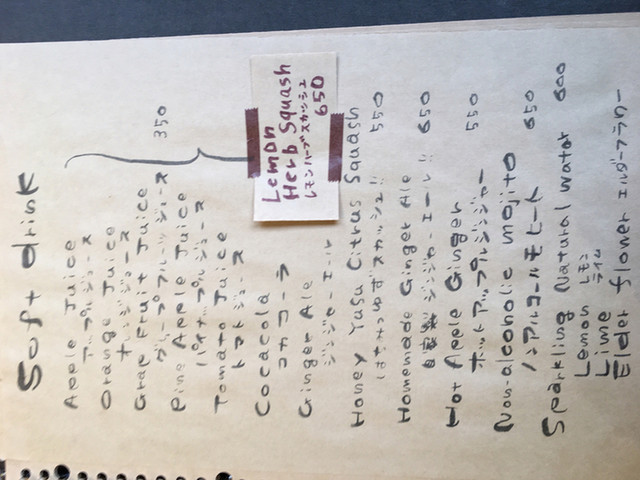 Soft drink
Apple Juice
アップルジュース
Orange Juice
オレンジジュース
Grap Fruit Juice
グレープフルーツジュース
350
Pine Apple Juice
パイナップルジュース
Tomato Juice
トマトジュース
Cocacola
コカコーラ
Ginger Ale
ジンジャーエール
Lemon
Herb Squash
レモンハーブスカッシュ
650
Honey Yuzu Citrus Squash
はちみつゆずスカッシュ!! 550
Homemade Ginger Ale
自家製ジンジャーエール!! 650
Hot Apple Ginger
ホットアップルジンジャー 550
Non-alcoholic mojito
ノンアルコールモヒート 650
Sparkling Natural water 600
Lemon レモン
Lime ライム
Elder flower エルダーフラワー